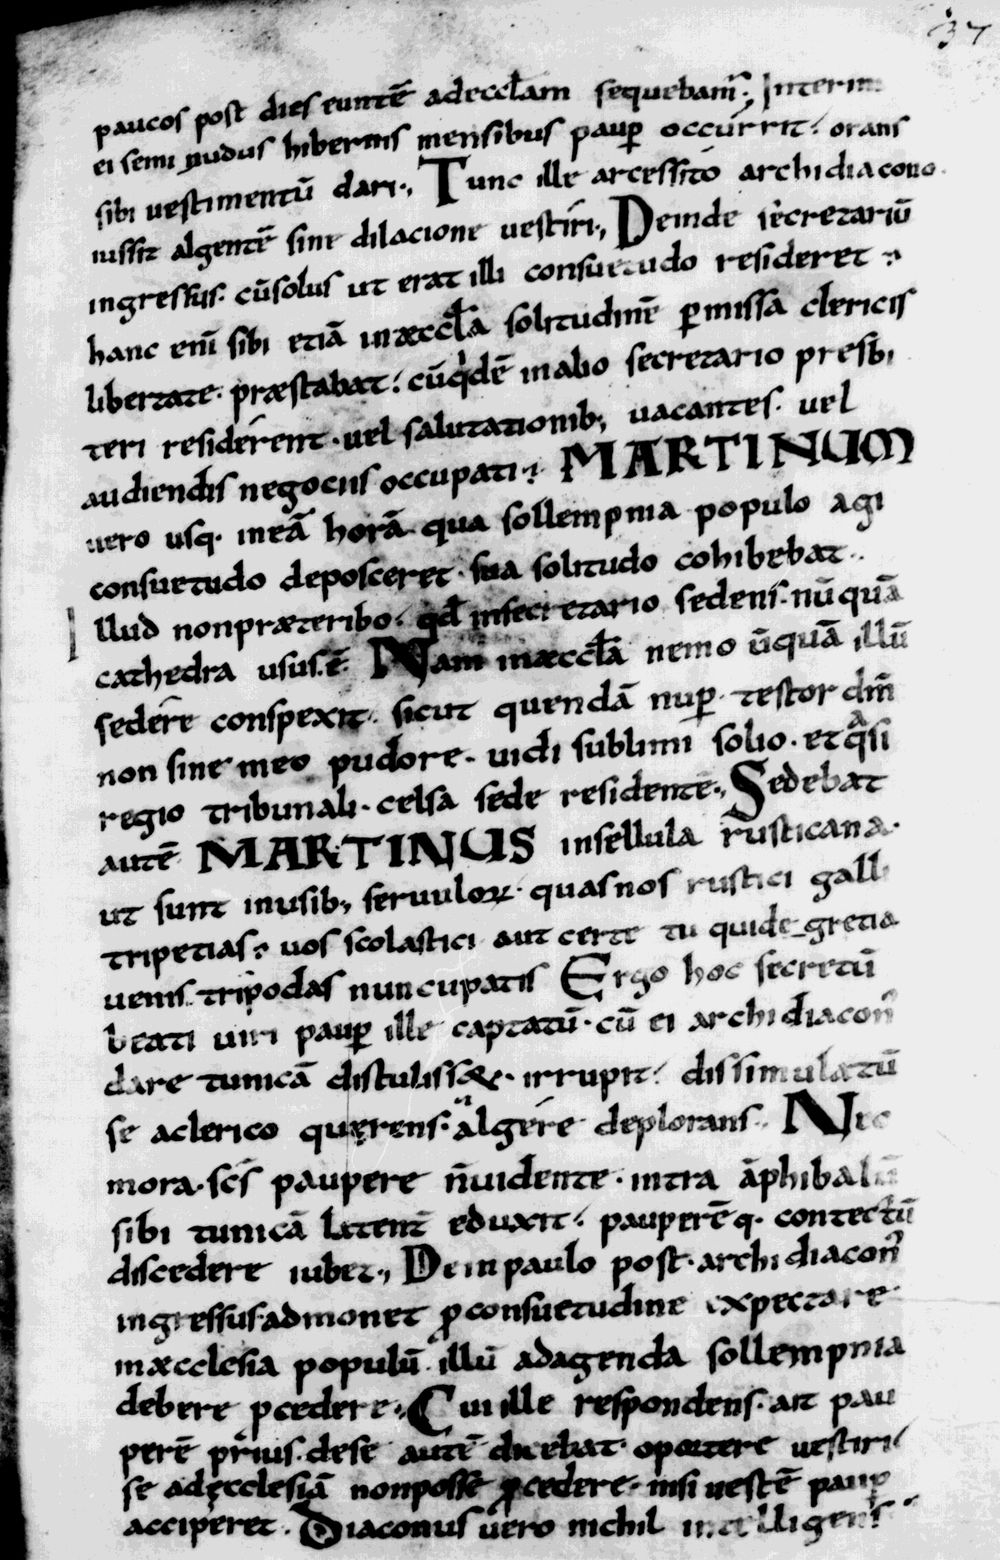 37
paucos post dies euntē adeccl̄am sequebam̄. Interim
ei semi nudus hibernis mensibus paup̄ occurrit. orans
sibi uestimentū dari., Tunc ille arcessito archidiacono.
iussit algentē sine dilacione uestiri., Deinde secretariū
ingressus. cūsolus ut erat illi consuetudo resideret.
hanc enī sibi etiā inæccl̄a solitudinē p̄missa clericis
libertate. præstabat. cūq'dē inalio secretario presbi
teri residerent. uel salutationib; uacantes. uel
audiendis negociis occupati. MARTINUM
uero usq. ineā horā qua sollempnia populo agi
consuetudo deposceret. sua solitudo cohibebat.
Illud nonpræteribo. qd̄ insecretario sedens. nūquā
cathedra usus.ē. Nam inæccl̄a nemo ūquā illū
sedere conspexit. sicut quendā nup̄. testor dn̄m
non sine meo pudore. uidi sublimi solio. et qͣsi
regio tribunali. celsa sede residente., Sedebat
autē MARTINUS insellula rusticana.
ut sunt inusib; seruuloꝝ. quas nos rustici galli
tripetias. uos scolastici aut certe tu qui de gretia
uenis. tripodas nuncupatis Ergo hoc secretū
beati uiri paup̄ ille captatū. cū ei archidiacon̄
dare tunicā distulisset. irrupit. dissimulatū
se aclerico querens. algere deplorans. Nec
mora. scs̄ paupere n̄uidente. intra āphibalū
sibi tunicā latent̄ eduxit. pauperēq. contectū
discedere iubet., Dein paulo post. archidiacon̄
ingressus.admonet ꝓconsuetudine expectare
inæcclesia populū. illū adagenda sollempnia
debere pcedere., Cui ille respondens. ait pau
perē prius. dese autē dicebat. oportere uestiri
se adęcclesiā nonposse ꝓcedere. nisi uestē paup̄
acciperet. Diaconus uero nichil intelligens